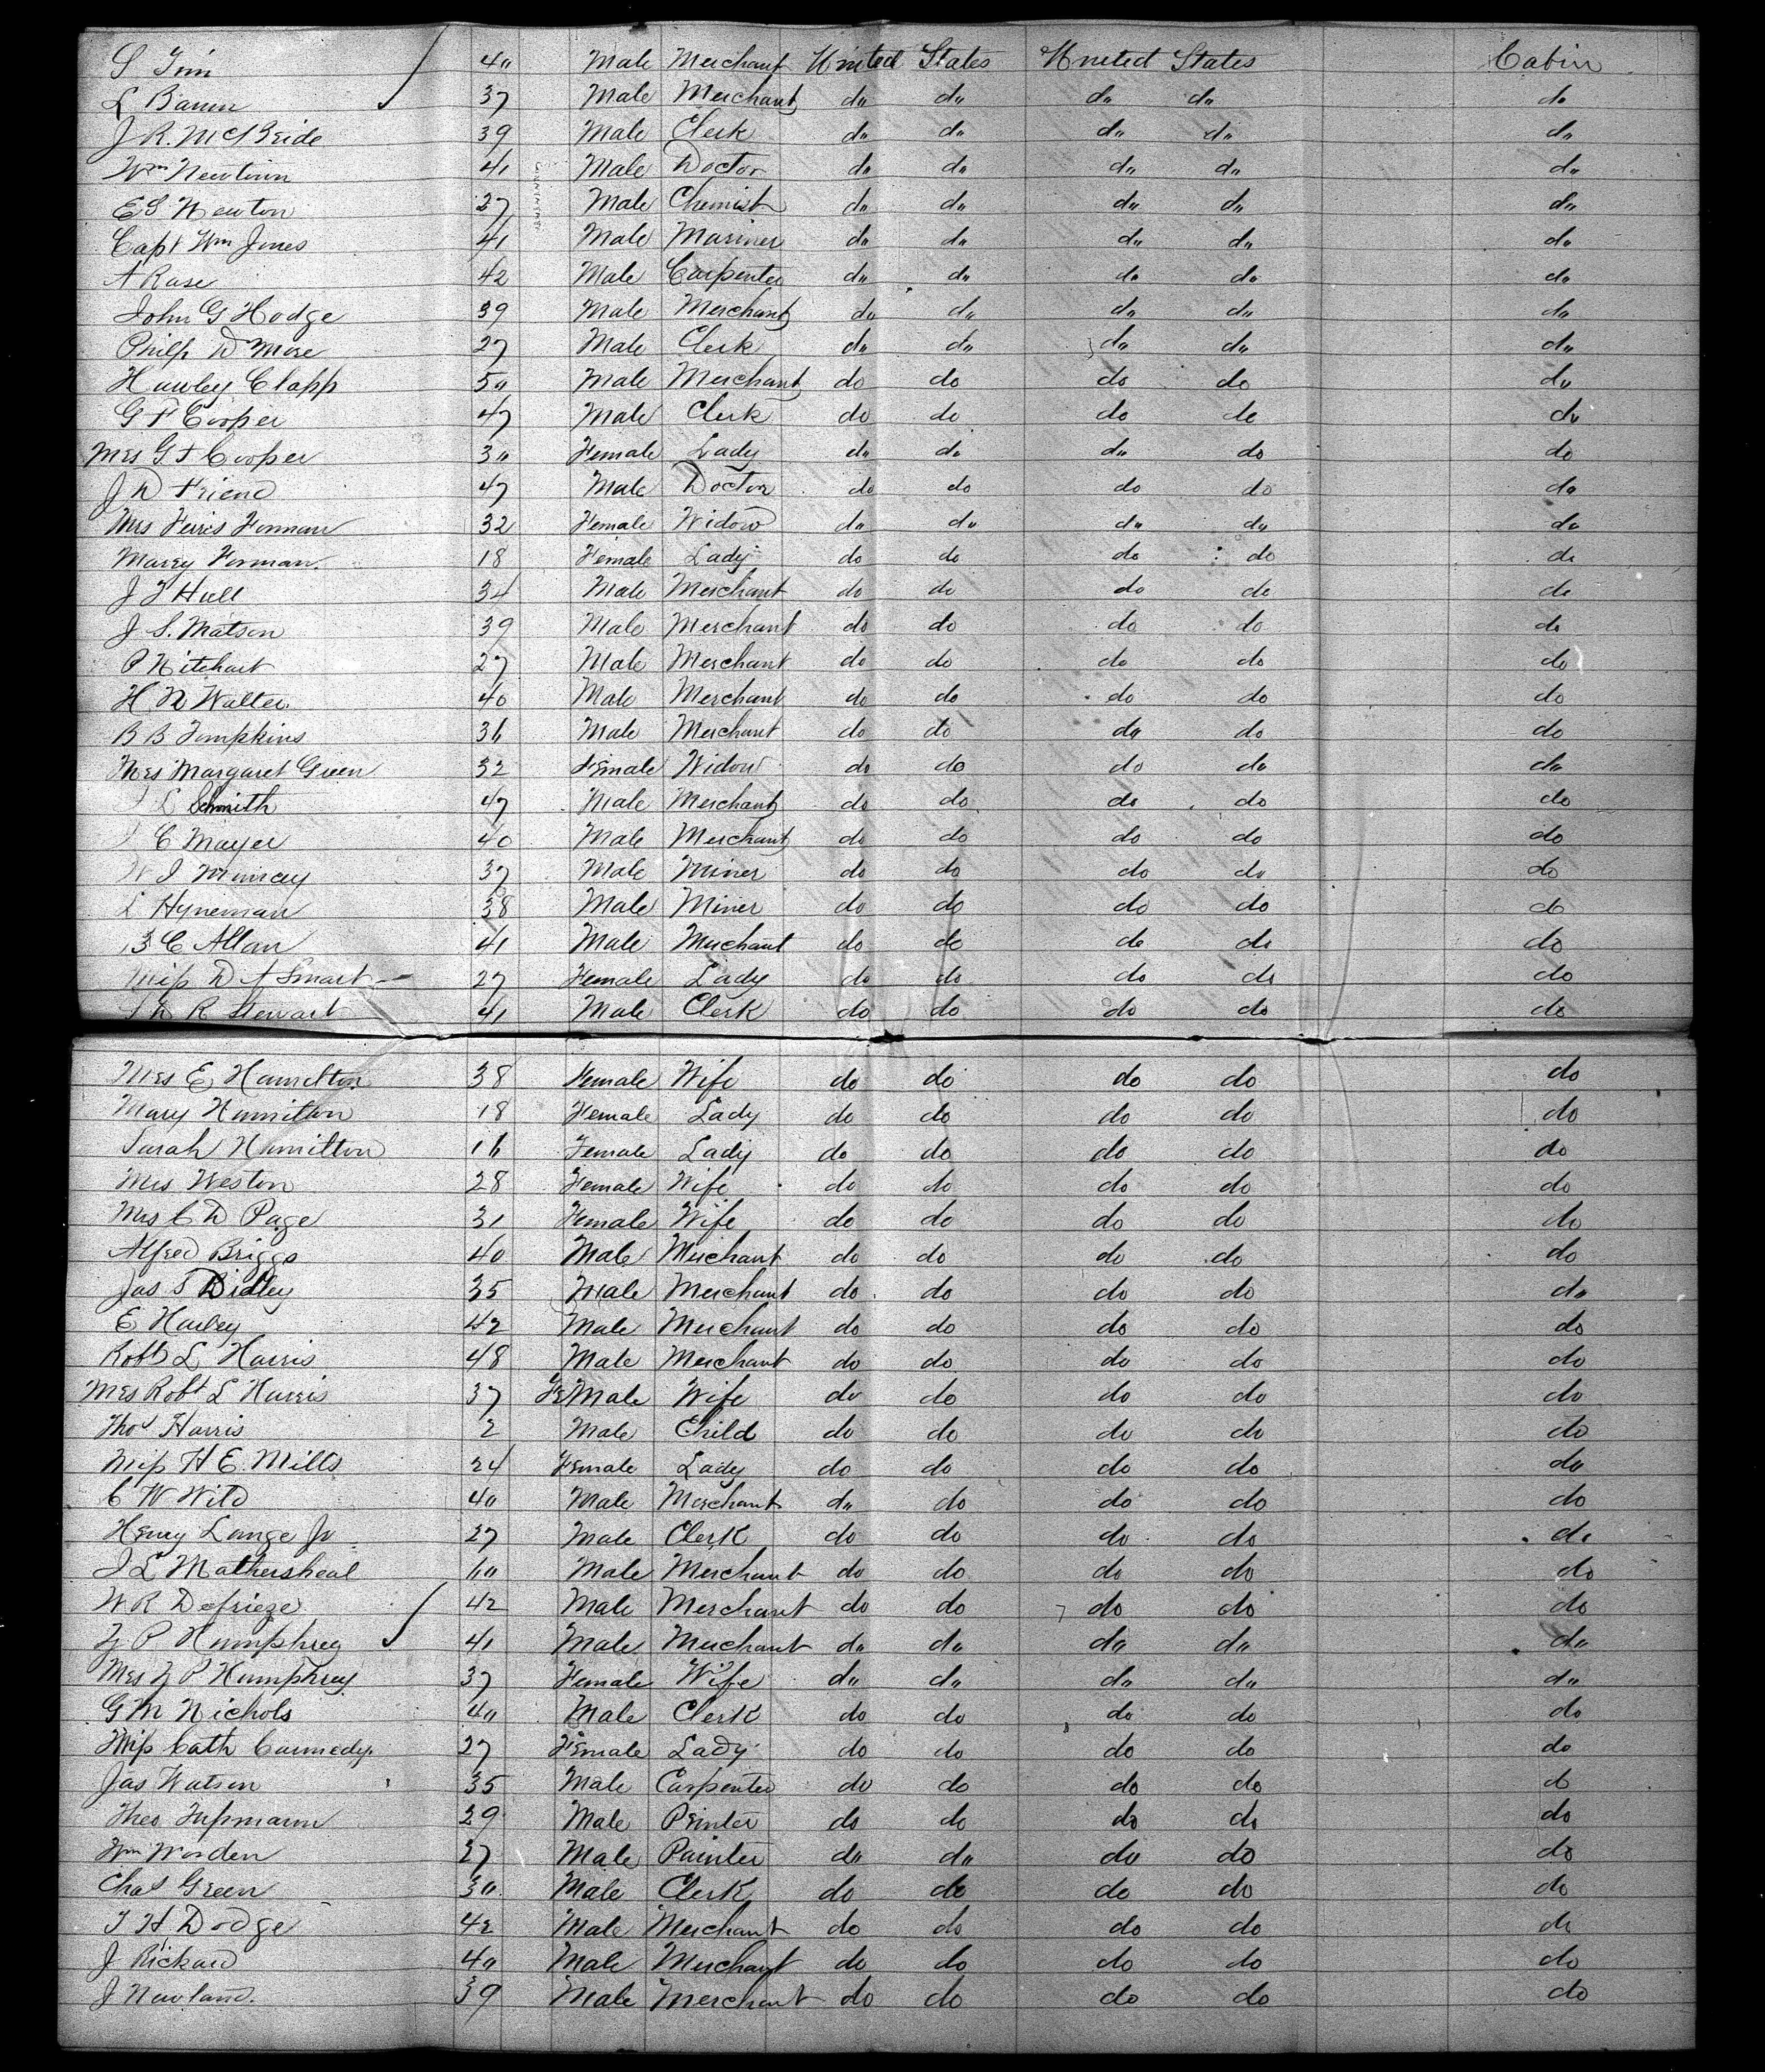 S Tim 40 Male Merchant United States United States Cabin
L Baum 37 Male Merchant do do do do do
J R. McBride 39 Male Clerk do do do do do
Wm Newtown 41 Male Doctor do do do do do
E S Newton 27 Male Chemist do do do do do
Capt Wm Jones 41 Male Mariner do do do do do
A Rase 42 Male Carpenter do do do do do
John G Hodge 39 Male Merchant do do do do do
Philp D More 27 Male Clerk do do do do do
Hawley Clapp 50 Male Merchant do do do do do
G F Cooper 47 Male Clerk do do do do do
Mrs G F Cooper 30 Female Lady do do do do do
J D Friend 47 Male Doctor do do do do do
Mrs Ferris Forman 32 Female Widow do do do do do
Marey Forman 18 Female Lady do do do do do
J T Hull 34 Male Merchant do do do do do
J S. Matson 39 Male Merchant do do do do do
P Nitchart 27 Male Merchant do do do do do
H N Walter 40 Male Merchant do do do do do
B B Tompkins 36 Male Merchant do do do do do
Mrs Margaret Green 32 Female Widow do do do do do
L Schmith 47 Male Merchant do do do do do
C Mayer 40 Male Merchant do do do do do
W J Murray 37 Male Miner do do do do do
L Hyneman 38 Male Miner do do do do do
B C Allan 41 Male Merchant do do do do do
Miss D A Smart 27 Female Lady do do do do do
R Stewart 41 Male Clerk do do do do do
Mrs E Hamilton 38 Female Wife do do do do do
Mary Hamilton 18 Female Lady do do do do do
Sarah Hamilton 16 Female Lady do do do do do
Mrs Weston 28 Female Wife do do do do do
Mrs C D Page 31 Female Wife do do do do do
Alfred Briggs 40 Male Merchant do do do do do
Jas T Didley 35 Male Merchant do do do do do
E Harley 42 Male Merchant do do do do do
Robt L Harris 48 Male Merchant do do do do do
Mrs Robt L Harris 37 FeMale Wife do do do do do
Thos Harris 2 Male Child do do do do do
Miss H E. Mills 24 Female Lady do do do do do
C W Wild 40 Male Merchant do do do do do
Henry Lange Jr 27 Male Clerk do do do do do
J L Mathersheal 60 Male Merchant do do do do do
W R Defrieze 42 Male Merchant do do do do do
Z P Humphrey 41 Male Merchant do do do do do
Mrs Z P Humphrey 37 Female Wife do do do do do
G M Nichols 40 Male Clerk do do do do do
Miss Cath Carmedy. 27 Female Lady do do do do do
Jas Watson 35 Male Carpenter do do do do do
Theo Tussmann 29 Male Printer do do do do do
Wm Worden 27 Male Painter do do do do do
Chas Green 30 Male Clerk do do do do do
T H Dodge 42 Male Merchant do do do do do
J Rickard 40 Male Merchant do do do do do
J Newland. 39 Male Merchant do do do do do